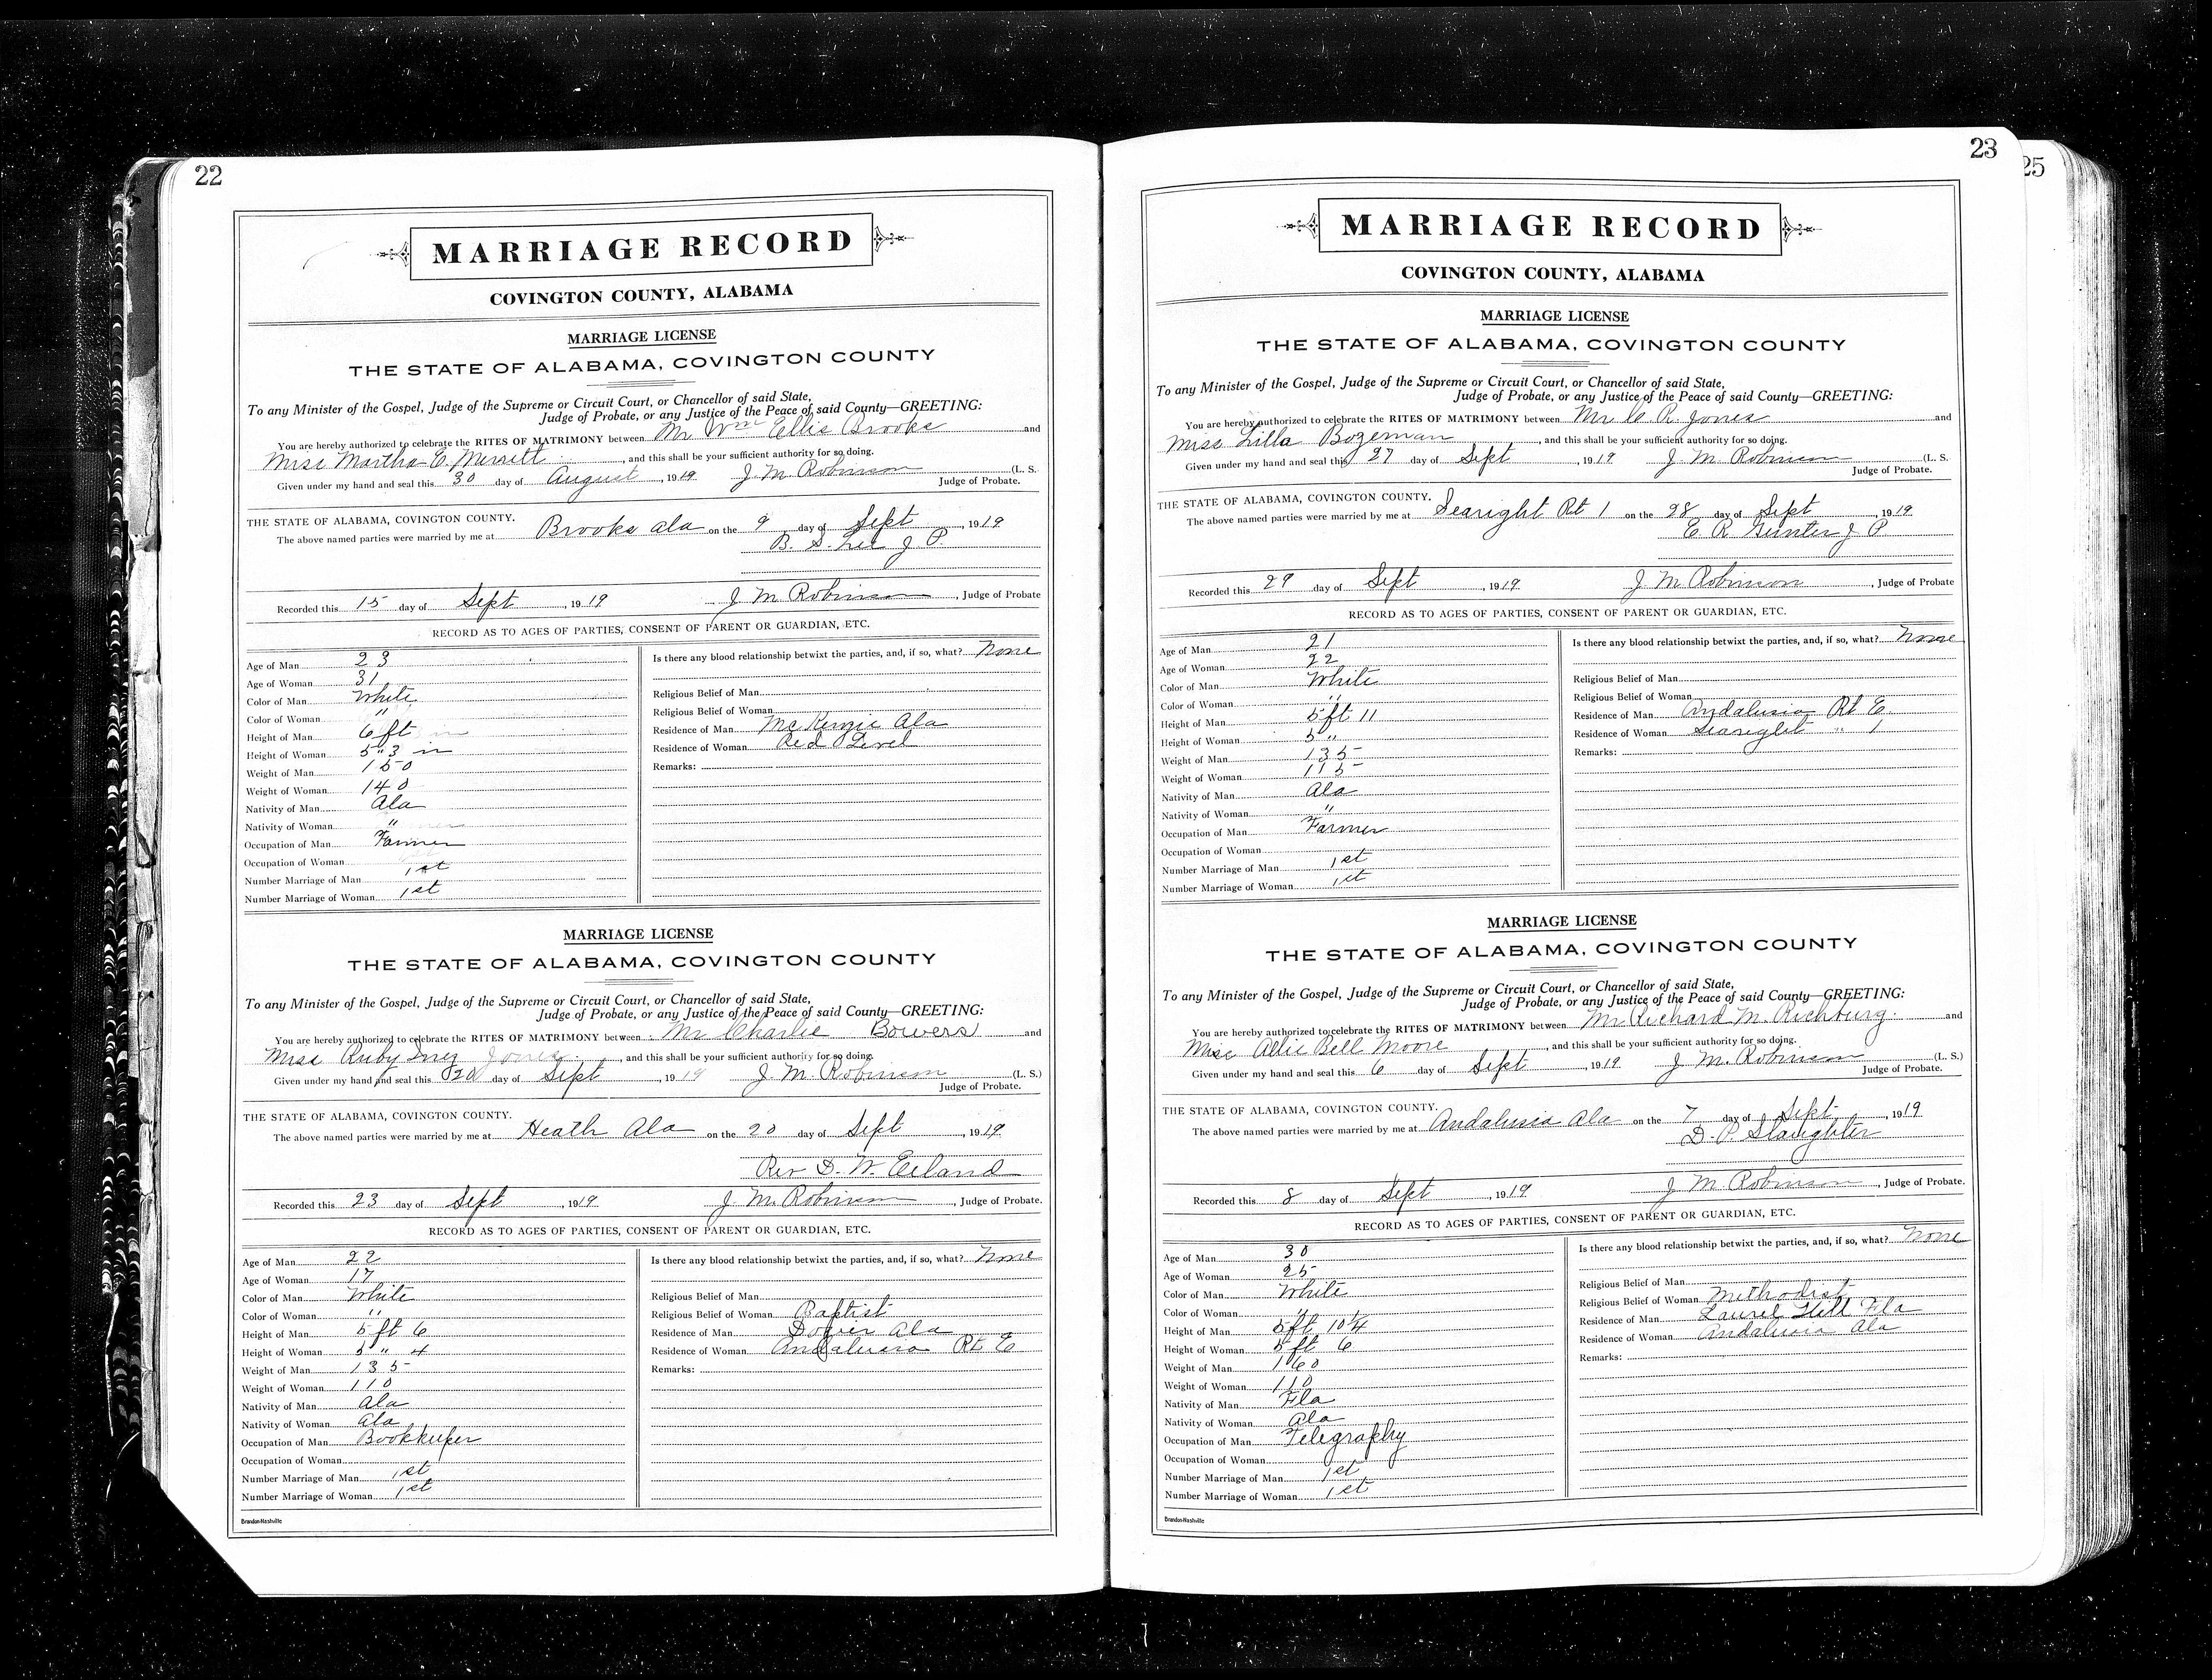 22
MARRIAGE RECORD
COVINGTON COUNTY, ALABAMA
MARRIAGE LICENSE
THE STATE OF ALABAMA, COVINGTON COUNTY
To any Minister of the Gospel, Judge of the Supreme or Circuit Court, or Chancellor of said State,
Judge of Probate, or any Justice of the Peace of said County—GREETING:
You are hereby authorized to celebrate the RITES OF MATRIMONY between Mr Wm Ellis Brooks and
Miss Martha E. Merrett, and this shall be your sufficient authority for so doing.
Given under my hand and seal this 30 day of August, 1919 J. M. Robinson (L. S.
Judge of Probate.
THE STATE OF ALABAMA, COVINGTON COUNTY.
The above named parties were married by me at Brooks Ala on the 9 day of Sept, 1919
B. S. Lee J. P.
Recorded this 15 day of Sept, 1919 J. M. Robinson, Judge of Probate
RECORD AS TO AGES OF PARTIES, CONSENT OF PARENT OR GUARDIAN, ETC.
Age of Man 23
Age of Woman 31
Color of Man White
Color of Woman "
Height of Man 6 ft
Height of Woman 5 " 3 in
Weight of Man 150
Weight of Woman 140
Nativity of Man Ala
Nativity of Woman "
Occupation of Man Farmer
Occupation of Woman
Number Marriage of Man 1st
Number Marriage of Woman 1st
Is there any blood relationship betwixt the parties, and, if so, what? None
Religious Belief of Man
Religious Belief of Woman
Residence of Man McKenzie Ala
Residence of Woman Red Level
Remarks:
MARRIAGE LICENSE
THE STATE OF ALABAMA, COVINGTON COUNTY
To any Minister of the Gospel, Judge of the Supreme or Circuit Court, or Chancellor of said State,
Judge of Probate, or any Justice of the Peace of said County—GREETING:
You are hereby authorized to celebrate the RITES OF MATRIMONY between Mr Charlie Bowers and
Miss Ruby Inez Jones, and this shall be your sufficient authority for so doing.
Given under my hand and seal this 20 day of Sept, 1919 J. M. Robinson (L. S.)
Judge of Probate.
THE STATE OF ALABAMA, COVINGTON COUNTY.
The above named parties were married by me at Heath Ala on the 20 day of Sept, 1919
Rev D. W. Eiland
Recorded this 23 day of Sept, 1919 J. M. Robinson, Judge of Probate.
RECORD AS TO AGES OF PARTIES, CONSENT OF PARENT OR GUARDIAN, ETC.
Age of Man 22
Age of Woman 17
Color of Man White
Color of Woman "
Height of Man 5 ft 6
Height of Woman 5 " 4
Weight of Man 135
Weight of Woman 110
Nativity of Man Ala
Nativity of Woman Ala
Occupation of Man Bookkeeper
Occupation of Woman
Number Marriage of Man 1st
Number Marriage of Woman 1st
Is there any blood relationship betwixt the parties, and, if so, what? None
Religious Belief of Man
Religious Belief of Woman Baptist
Residence of Man Dozier Ala
Residence of Woman Andalusia Rt E
Remarks:
Brandon-Nashville
23
MARRIAGE RECORD
COVINGTON COUNTY, ALABAMA
MARRIAGE LICENSE
THE STATE OF ALABAMA, COVINGTON COUNTY
To any Minister of the Gospel, Judge of the Supreme or Circuit Court, or Chancellor of said State,
Judge of Probate, or any Justice of the Peace of said County—GREETING:
You are hereby authorized to celebrate the RITES OF MATRIMONY between Mr C. R. Jones and
Miss Lilla Bozeman, and this shall be your sufficient authority for so doing.
Given under my hand and seal this 27 day of Sept, 1919 J. M. Robinson (L. S.
Judge of Probate.
THE STATE OF ALABAMA, COVINGTON COUNTY.
The above named parties were married by me at Searight Rt 1 on the 28 day of Sept, 1919
C. R. Gunter J P.
Recorded this 29 day of Sept, 1919 J M Robinson, Judge of Probate
RECORD AS TO AGES OF PARTIES, CONSENT OF PARENT OR GUARDIAN, ETC.
Age of Man 21
Age of Woman 22
Color of Man White
Color of Woman "
Height of Man 5 ft 11
Height of Woman 5 "
Weight of Man 135
Weight of Woman 115
Nativity of Man Ala
Nativity of Woman "
Occupation of Man Farmer
Occupation of Woman
Number Marriage of Man 1st
Number Marriage of Woman 1st
Is there any blood relationship betwixt the parties, and, if so, what? None
Religious Belief of Man
Religious Belief of Woman
Residence of Man Andalusia Rt E
Residence of Woman Searight " 1
Remarks:
MARRIAGE LICENSE
THE STATE OF ALABAMA, COVINGTON COUNTY
To any Minister of the Gospel, Judge of the Supreme or Circuit Court, or Chancellor of said State,
Judge of Probate, or any Justice of the Peace of said County—GREETING:
You are hereby authorized to celebrate the RITES OF MATRIMONY between Mr Richard M. Richburg and
Miss Allie Bell Moore, and this shall be your sufficient authority for so doing.
Given under my hand and seal this 6 day of Sept, 1919 J. M. Robinson (L. S.)
Judge of Probate.
THE STATE OF ALABAMA, COVINGTON COUNTY.
The above named parties were married by me at Andalusia Ala on the 7 day of Sept., 1919
D. P. Slaughter
Recorded this 8 day of Sept, 1919 J M. Robinson, Judge of Probate.
RECORD AS TO AGES OF PARTIES, CONSENT OF PARENT OR GUARDIAN, ETC.
Age of Man 30
Age of Woman 25
Color of Man White
Color of Woman "
Height of Man 5 ft 10 1/4
Height of Woman 5 ft 6
Weight of Man 160
Weight of Woman 110
Nativity of Man Fla
Nativity of Woman Ala
Occupation of Man Telegraphy
Occupation of Woman
Number Marriage of Man 1st
Number Marriage of Woman 1st
Is there any blood relationship betwixt the parties, and, if so, what? None
Religious Belief of Man
Religious Belief of Woman Methodist
Residence of Man Laurel Hill Fla
Residence of Woman Andalusia Ala
Remarks:
Brandon-Nashville
25